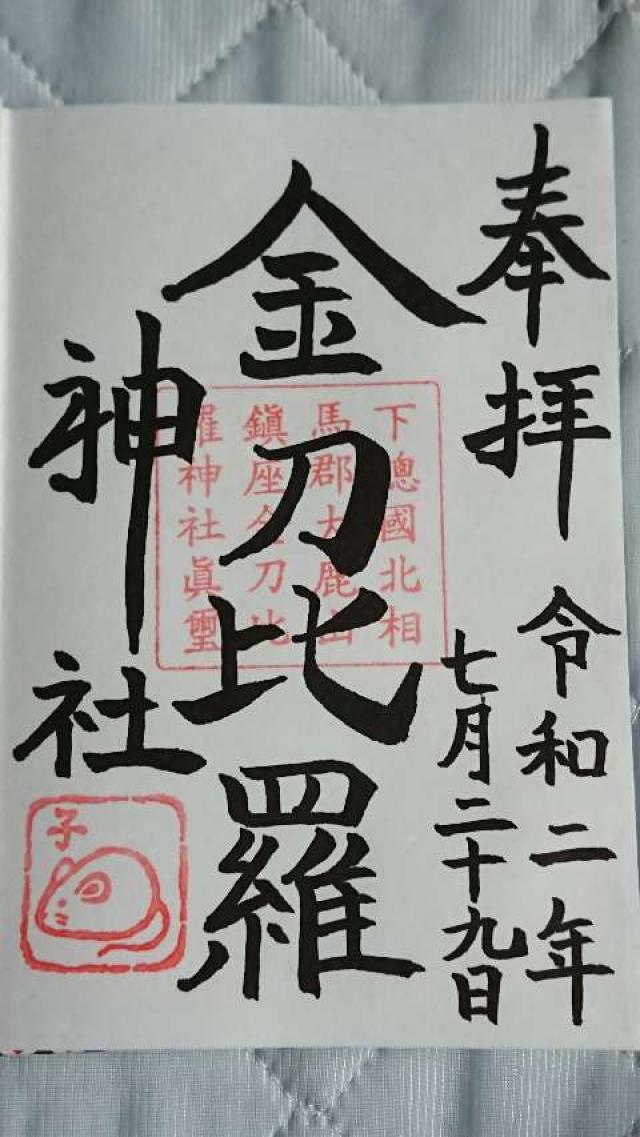 奉拝
令和二年
七月二十九日
金刀比羅
神社
下總國北相
馬郡大鹿山
鎮座金刀比
羅神社眞璽
子